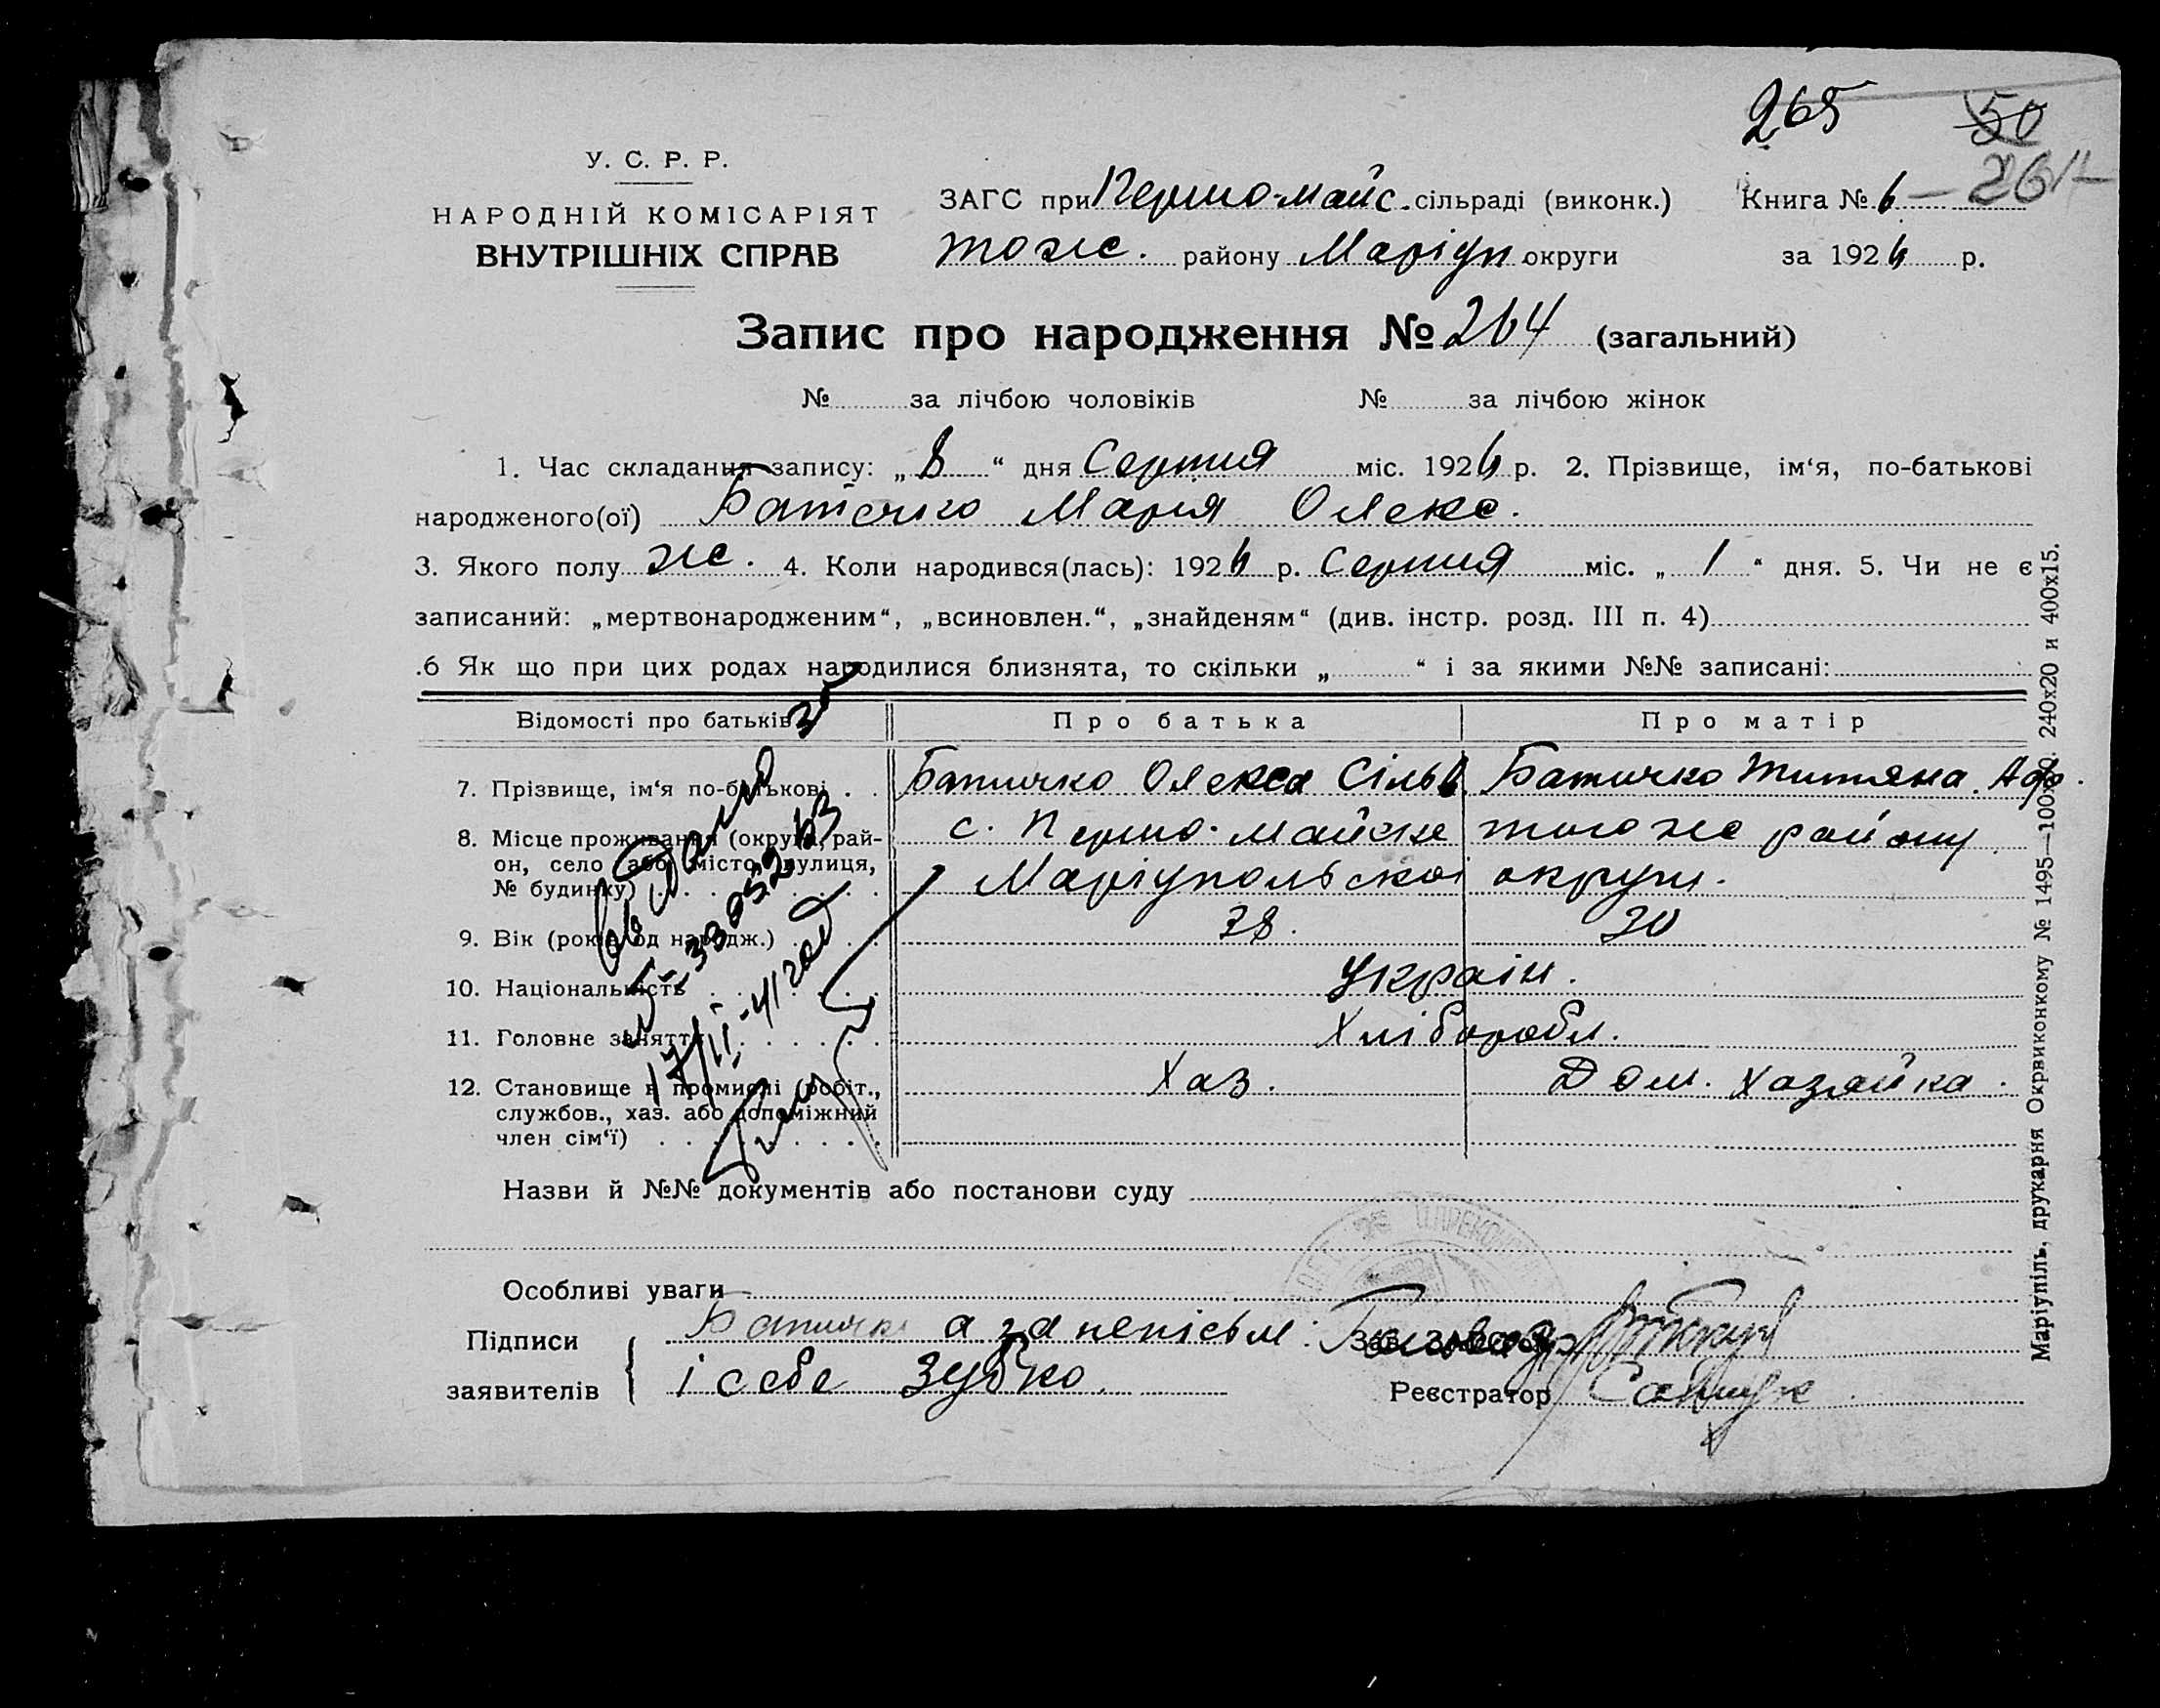 265
50
264
У. С. Р. Р.
НАРОДНІЙ КОМІСАРІЯТ
ВНУТРІШНІХ СПРАВ
ЗАГС при Першо-майс. сільраді (виконк.) Книга № 6
тоже. району Маріуп округи за 1926 р.
Запис про народження № 264 (загальний)
№ за лічбою чоловіків № за лічбою жінок
1. Час складання запису: „ 8 “ дня Серпня міс. 1926 р. 2. Прізвище, ім‘я, по-батькові
народженого(ої) Батечко Марія Олекс.
3. Якого полу же. 4. Коли народився(лась): 1926 р. Серпня міс. „ 1 “ дня. 5. Чи не є
записаний: „мертвонародженим“, „всиновлен.“, „знайденям“ (див. інстр. розд. III п. 4)
.6 Як що при цих родах народилися близнята, то скільки „ “ і за якими №№ записані:
Відомості про батьків Про батька Про матір
7. Прізвище, ім‘я по-батькові . . Батичко Олекса Сільв. Батичко Титяна. Аф.
8. Місце проживання (округа, рай-
он, село або місто, вулиця,
№ будинку) с. Першо-майске того же району
Маріупольскоі округи.
9. Вік (років од народж.) 38. 30
10. Національність Украін.
11. Головне заняття Хлібороби.
12. Становище в промислі (робіт.,
службов., хаз. або допоміжний
член сім‘ї) Хаз. Дом. хазяйка.
17/II-41 года
Назви й №№ документів або постанови суду
Особливі уваги
Підписи заявителів Батичк а за неписьм:
і себе Зубко
Зав. ЗАГС‘ом
Реєстратор
Маріупіль, друкарня Окрвиконкому № 1495—100х50. 240х20 и 400х15.